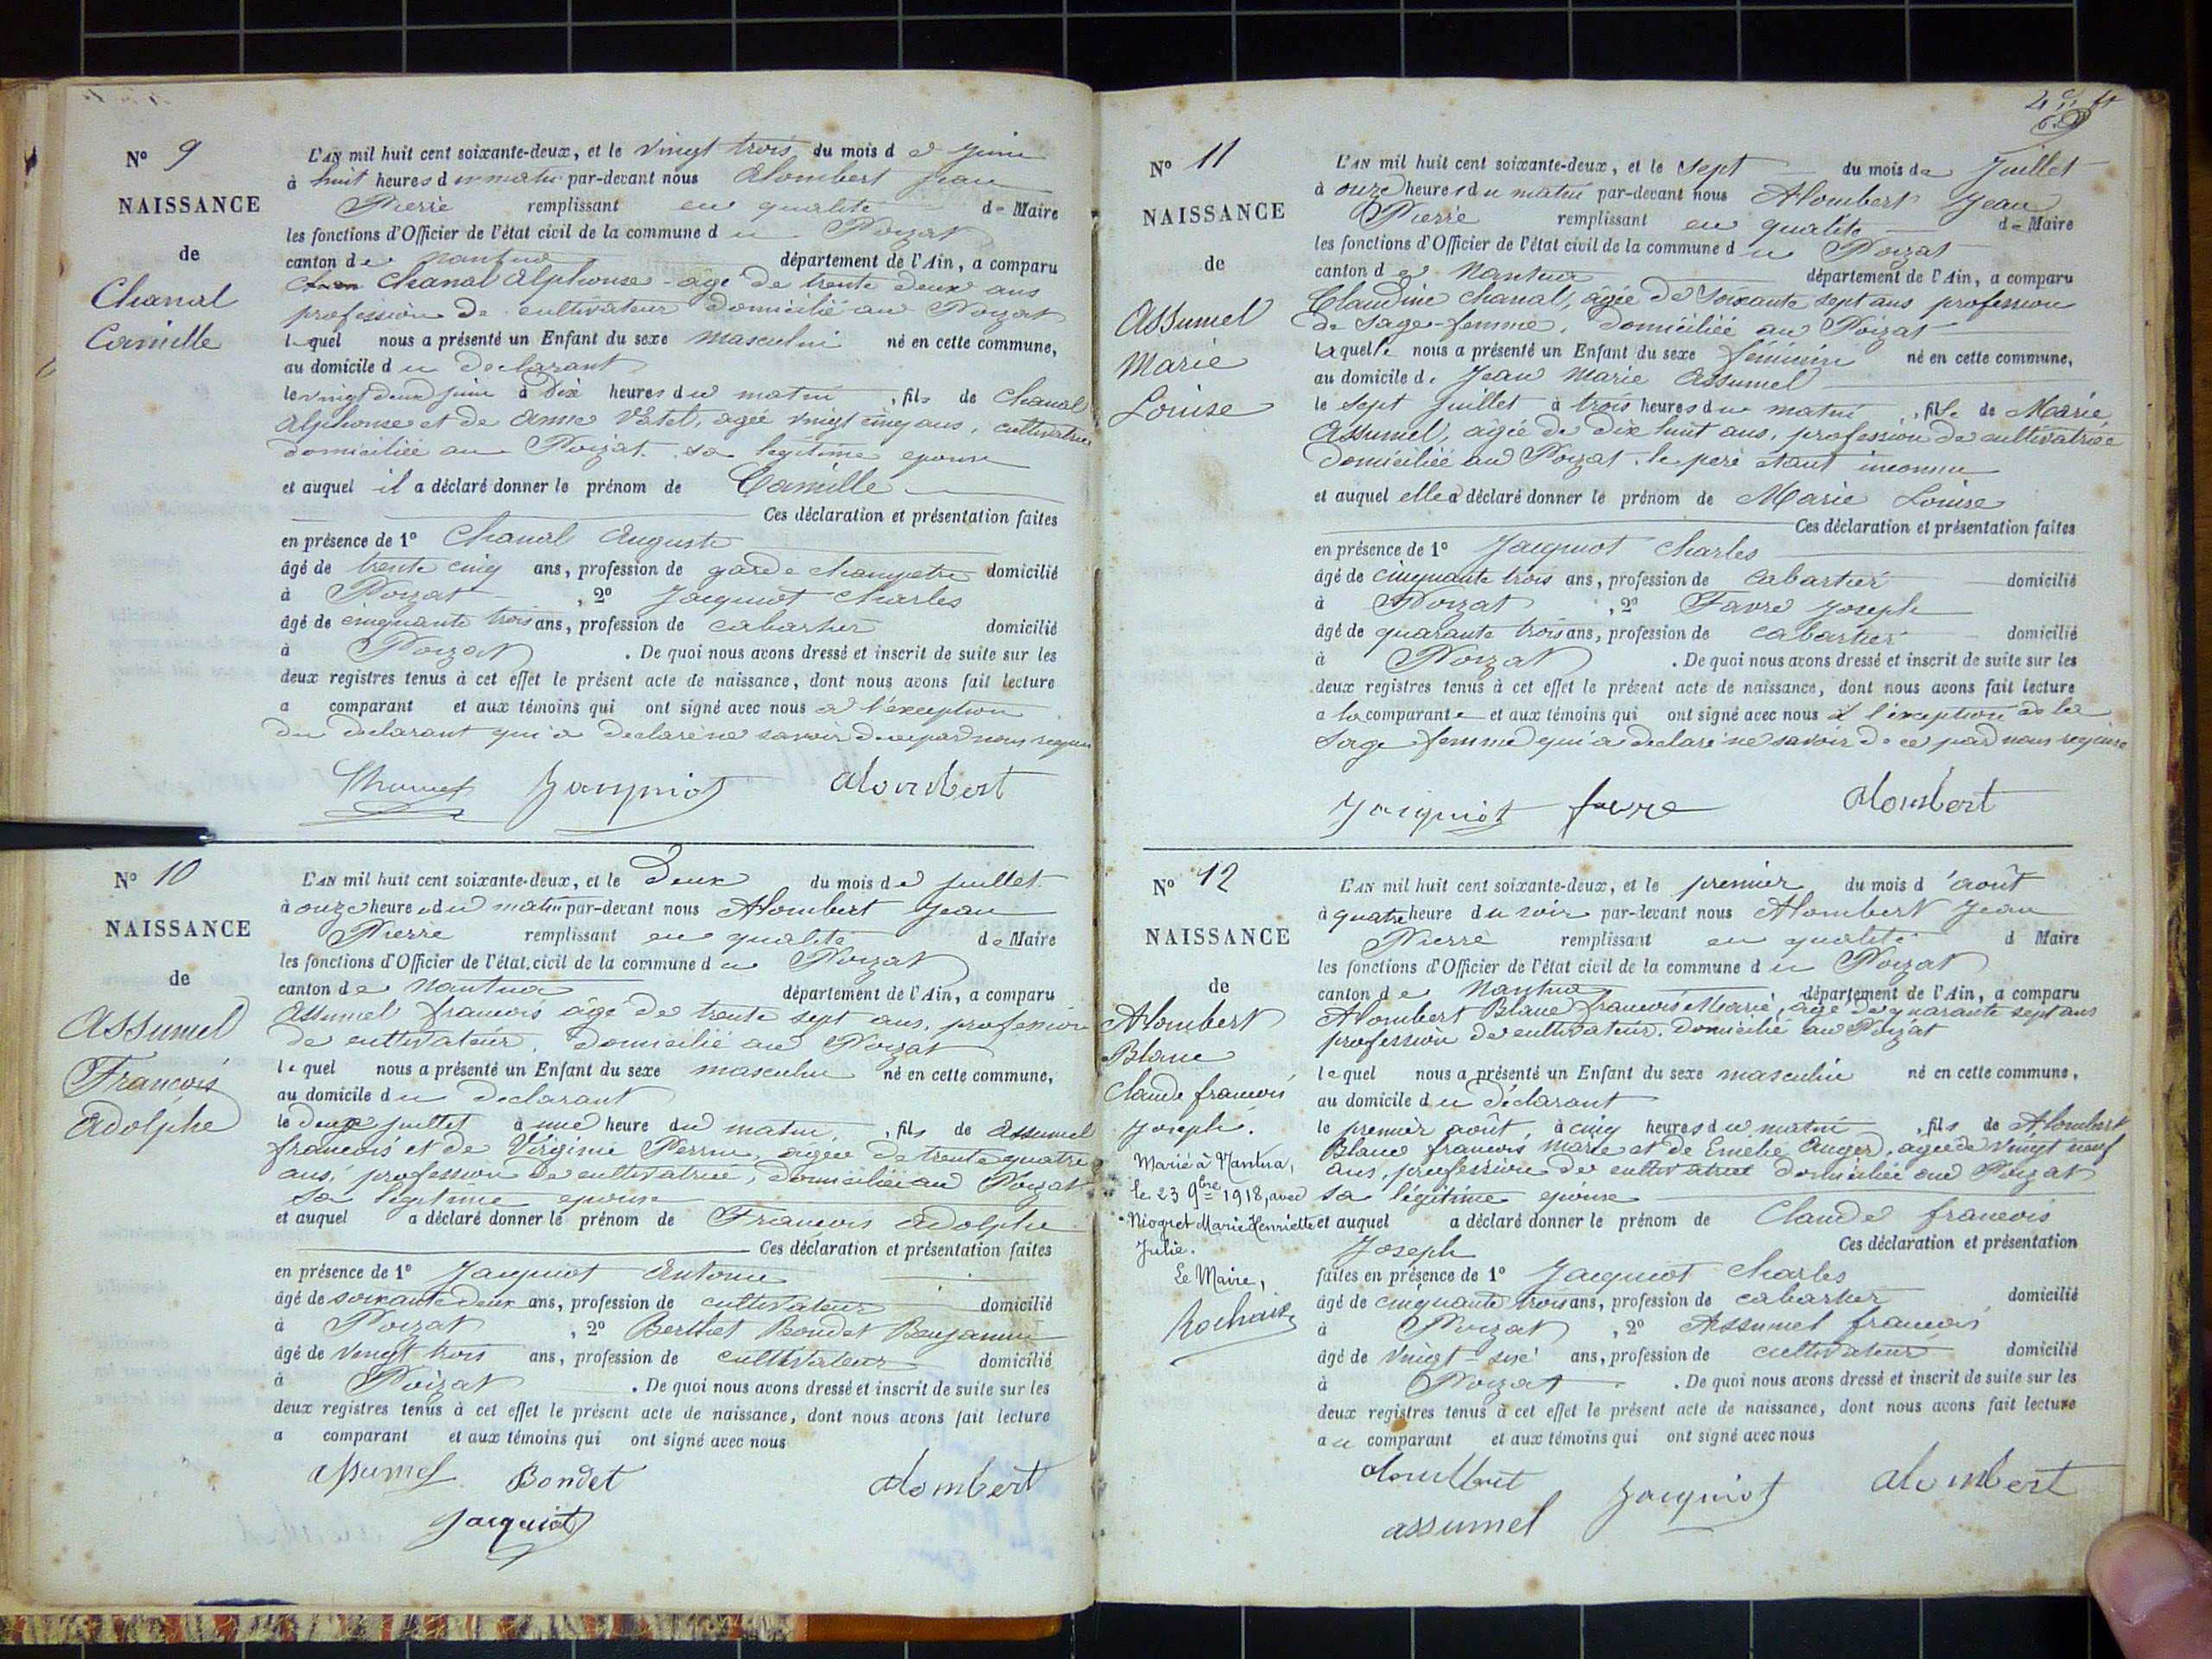 N° 9
NAISSANCE
de
Chanal
Camille
L'AN mil huit cent soixante-deux, et le vingt trois du mois de Juin
à huit heures du matin par-devant nous Alombert Jean
Pierre remplissant en qualité de Maire
les fonctions d'Officier de l'état civil de la commune du Poizat
canton de Nantua département de l'Ain, a comparu
Chanal Alphonse âgé de trente deux ans
profession de cultivateur domicilié au Poizat
lequel nous a présenté un Enfant du sexe masculin né en cette commune,
au domicile du declarant
le vingt deux juin à Dix heures du matin, fils de Chanal
Alphonse et de Anne Vatel, agée vingt cinq ans, cultivatrice
domiciliée au Poizat sa legitime epouse
et auquel il a déclaré donner le prénom de Camille
Ces déclaration et présentation faites
en présence de 1° Chanal Auguste
âgé de trente cinq ans, profession de garde champetre domicilié
à Poizat, 2° Jacquiot Charles
âgé de cinquante trois ans, profession de cabartier domicilié
à Poizat. De quoi nous avons dressé et inscrit de suite sur les
deux registres tenus à cet effet le présent acte de naissance, dont nous avons fait lecture
a comparant et aux témoins qui ont signé avec nous a l'exception
du declarant qui a declaré ne savoir de ce par nous requis
Jacquiot alombert
N° 10
NAISSANCE
de
Assumel
Francois
Adolphe
L'AN mil huit cent soixante-deux, et le Deux du mois de Juillet
à onze heure du matin par-devant nous Alombert Jean
Pierre remplissant en qualité de Maire
les fonctions d'Officier de l'état civil de la commune du Poizat
canton de Nantua département de l'Ain, a comparu
Assumel francois âgé de trente sept ans, profession
de cultivateur, Domicilié au Poizat
lequel nous a présenté un Enfant du sexe masculin né en cette commune,
au domicile du declarant
le deux juillet à une heure du matin, fils de Assumel
francois et de Virginie Perrin, agée de trente quatre
ans, profession de cultivatrice, domiciliée au Poizat
sa legitime epouse
et auquel a déclaré donner le prénom de Francois Adolphe
Ces déclaration et présentation faites
en présence de 1° Jacquiot Antoine
âgé de soixante deux ans, profession de cultivateur domicilié
à Poizat, 2° Berthet Bondet Benjamin
âgé de vingt trois ans, profession de cultivateur domicilié
à Poizat. De quoi nous avons dressé et inscrit de suite sur les
deux registres tenus à cet effet le présent acte de naissance, dont nous avons fait lecture
a comparant et aux témoins qui ont signé avec nous
assumel Bondet alombert
Jacquiot
N° 11
NAISSANCE
de
Assumel
Marie
Louise
L'AN mil huit cent soixante-deux, et le sept du mois de Juillet
à onze heures du matin par-devant nous Alombert Jean
Pierre remplissant en qualité de Maire
les fonctions d'Officier de l'état civil de la commune du Poizat
canton de Nantua département de l'Ain, a comparu
Claudine Chanal, âgée de soixante sept ans profession
de sage-femme, domiciliée au Poizat
laquelle nous a présenté un Enfant du sexe féminin né en cette commune,
au domicile de Jean Marie Assumel
le sept Juillet à trois heures du matin, fille de Marie
Assumel, agée de dix huit ans, profession de cultivatrice
Domiciliée au Poizat, le père étant inconnu
et auquel elle a déclaré donner le prénom de Marie Louise
Ces déclaration et présentation faites
en présence de 1° Jacquiot Charles
âgé de cinquante trois ans, profession de cabartier domicilié
à Poizat, 2° Favre Joseph
âgé de quarante trois ans, profession de cabartier domicilié
à Poizat. De quoi nous avons dressé et inscrit de suite sur les
deux registres tenus à cet effet le présent acte de naissance, dont nous avons fait lecture
a la comparante et aux témoins qui ont signé avec nous à l'exception de la
sage femme qui a declaré ne savoir de ce par nous requise
Jacquiot favre alombert
N° 12
NAISSANCE
de
Alombert
Blanc
Claude francois
Joseph.
Marié à Nantua,
le 23 9bre 1918, avec
Niogret Marie Henriette
Julie.
Le Maire,
Rochaix
L'AN mil huit cent soixante-deux, et le premier du mois d'août
à quatre heure du soir par-devant nous Alombert Jean
Pierre remplissant en qualité d Maire
les fonctions d'Officier de l'état civil de la commune du Poizat
canton de Nantua département de l'Ain, a comparu
Alombert Blanc francois Marie, âgé de quarante sept ans
profession de cultivateur, Domicilié au Poizat
lequel nous a présenté un Enfant du sexe masculin né en cette commune,
au domicile du déclarant
le premier août, à cinq heures du matin, fils de Alombert
Blanc francois Marie et de Emélie Auger, agée de vingt neuf
ans, profession de cultivatrice domiciliée au Poizat
sa légitime epouse
et auquel a déclaré donner le prénom de Claude francois
Joseph Ces déclaration et présentation
faites en présence de 1° Jacquiot Charles
âgé de cinquante trois ans, profession de cabartier domicilié
à Poizat, 2° Assumel francois
âgé de vingt-six ans, profession de cultivateur domicilié
à Poizat. De quoi nous avons dressé et inscrit de suite sur les
deux registres tenus à cet effet le présent acte de naissance, dont nous avons fait lecture
au comparant et aux témoins qui ont signé avec nous
alombert Jacquiot alombert
assumel